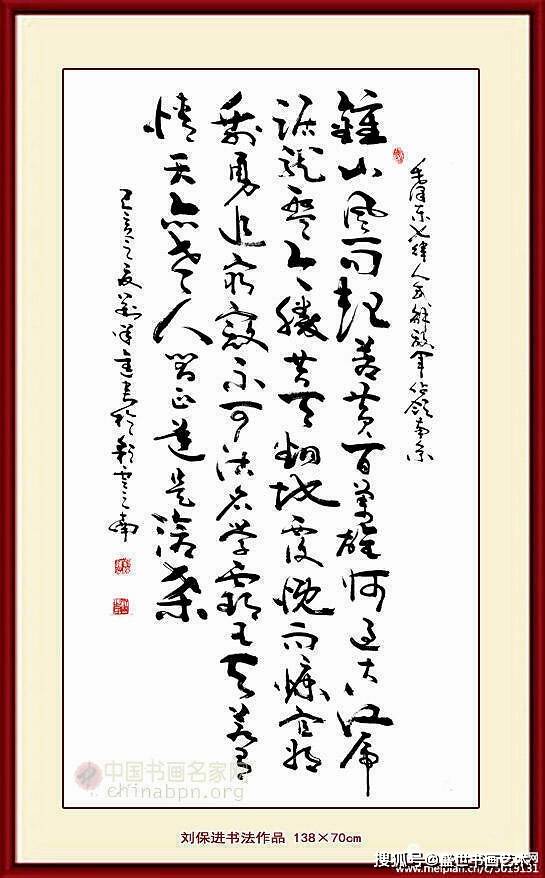 毛泽东七律人民解放军占领南京
鐘山风雨起苍黄百萬雄师过大江虎
踞龙盘今胜昔天翻地覆慨而慷宜将
剩勇追穷寇不可沽名学霸王天若有
情天亦老人间正道是沧桑
己亥之夏刘保进书於彩云之南
中国书画名家网
chinabpn.org
刘保进书法作品 138×70cm
搜狐号@盛世书画艺术网
www.meipian.cn/c/5019131